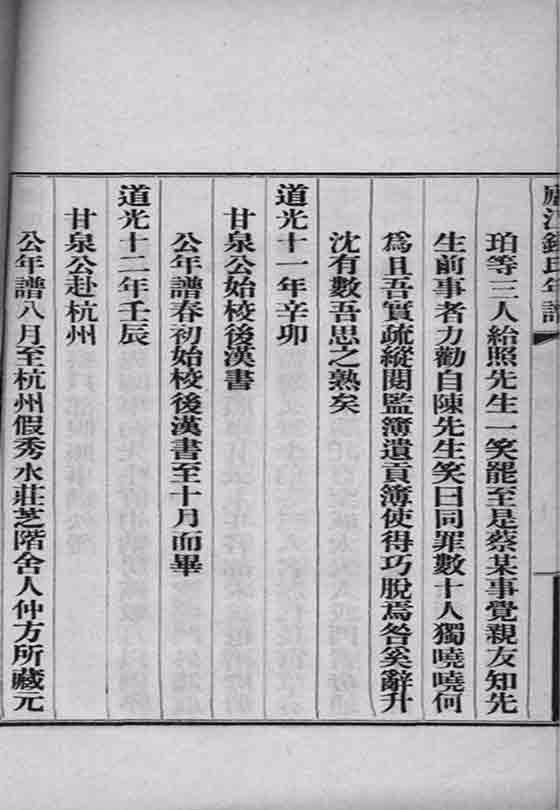 廬江錢氏年譜
珀等三人給照先生一笑罷至是蔡某事覺親友知先
生前事者力勸自陳先生笑曰同罪數十人獨嘵嘵何
為且吾實疏縱閱監簿遺貢簿使得巧脫焉咎奚辭升
沈有數吾思之熟矣
道光十一年辛卯
甘泉公始校後漢書
公年譜春初始校後漢書至十月而畢
道光十二年壬辰
甘泉公赴杭州
公年譜八月至杭州假秀水莊芝階舍人仲方所藏元